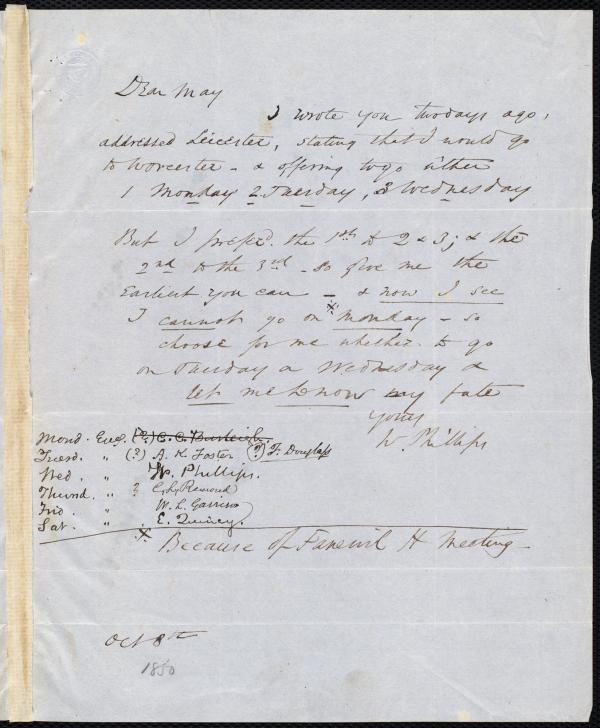 Dear May
I wrote you two days ago,
addressed Leicester, stating that I would go
to Worcester - & offering to go either
1 Monday 2 Tuesday, 3 Wednesday
But I prefd. the 1st to 2 & 3; & the
2nd to the 3rd - so give me the
Earliest you can - & now I see
I cannot go on x Monday - so
choose for me whether to go
on Tuesday or Wednesday &
let me know my fate
Yours
W. Phillips
Mond. Eveg. (?) C. C. Burleigh.
Tuesd. " (?) A. K. Foster (?) F. Douglass
Wed. " W. Phillips.
Thursd. " ? C. L. Remond
Frid. " W. L. Garrison
Sat. " E. Quincy.
x Because of Faneuil H Meeting -
Oct 8th
1850